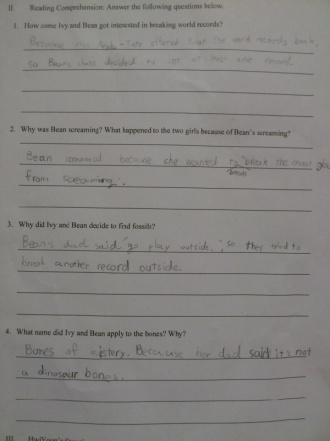 II. Reading Comprehension: Answer the following questions below.
1. How come Ivy and Bean got interested in breaking world records?
Because offered the world records book,
so Bean's class decided to at least one record.
2. Why was Bean screaming? What happened to the two girls because of Bean's screaming?
Bean screamed because she wanted to "break the most
from screaming".
3. Why did Ivy and Bean decide to find fossils?
Bean's dad said "go play outside", so they tried to
break another record outside.
4. What name did Ivy and Bean apply to the bones? Why?
Bones of mistery. Because her dad said it's not
a dinosaur bones.
III.